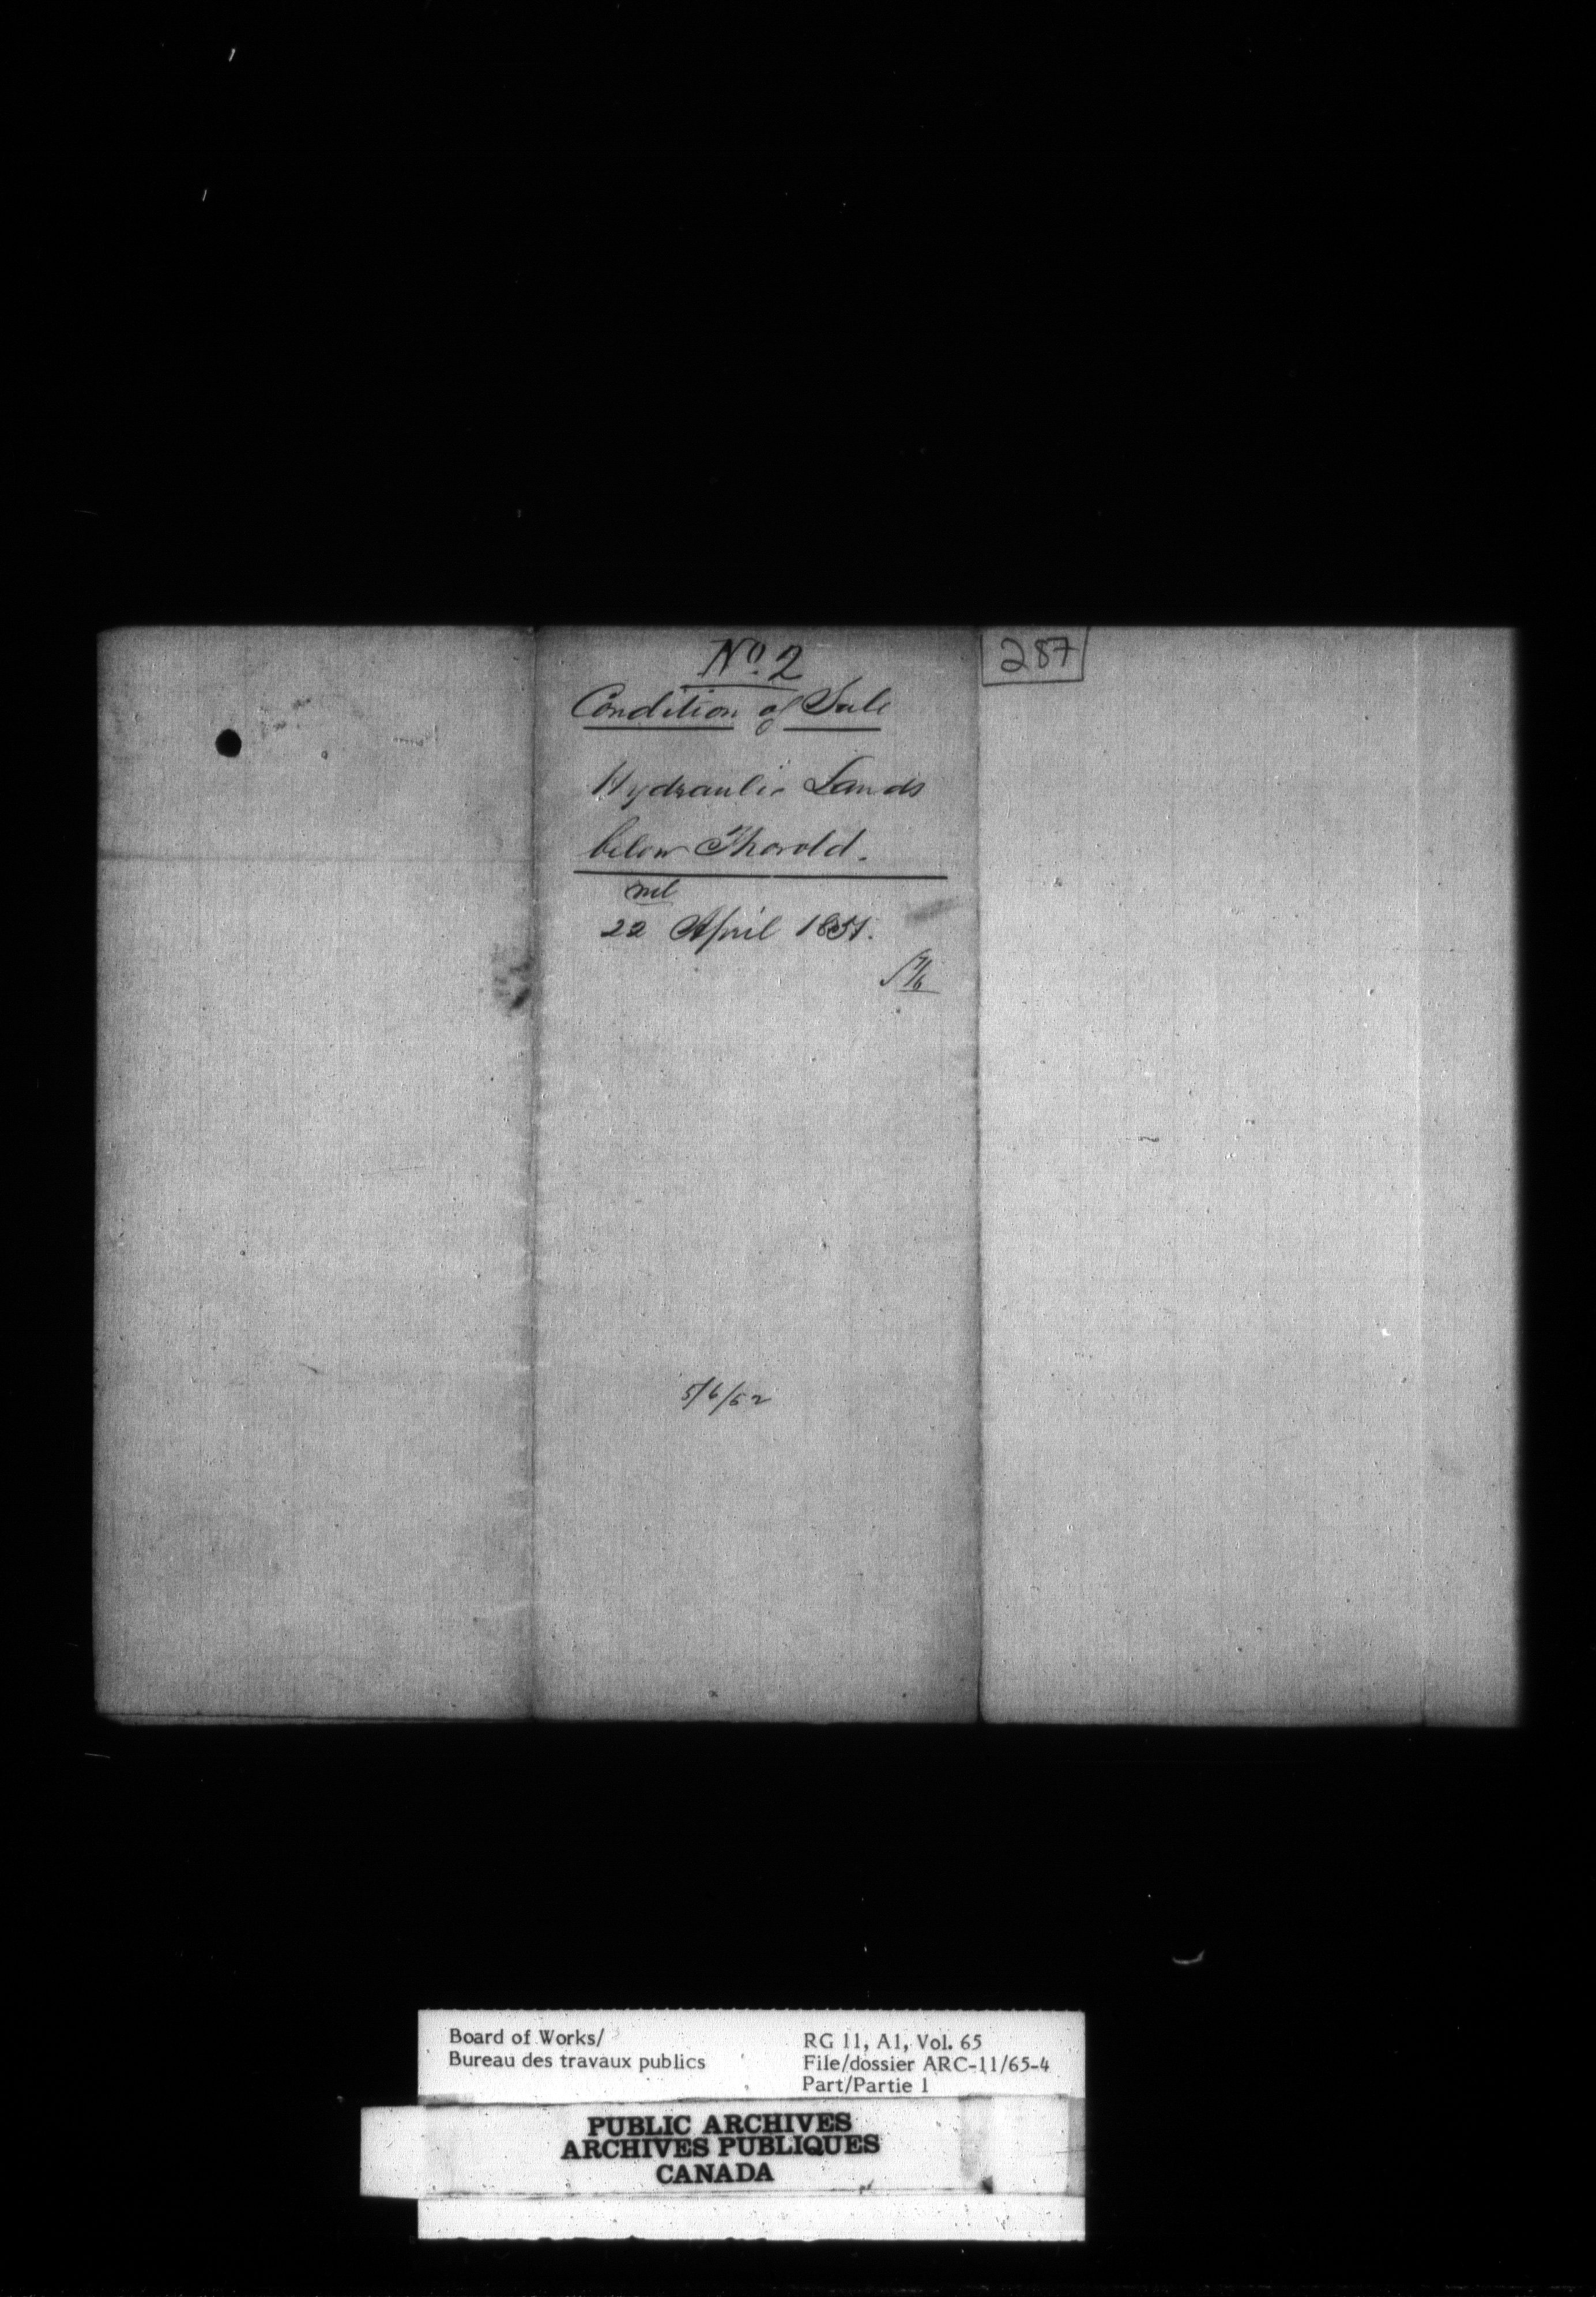 No. 2
287
Condition of Sale
Hydraulic Lands
below Thorold.
22 April 1851.
5/6/52
Board of Works/
Bureau des travaux publics
RG 11, A1, Vol. 65
File/dossier ARC-11/65-4
Part/Partie 1
PUBLIC ARCHIVES
ARCHIVES PUBLIQUES
CANADA